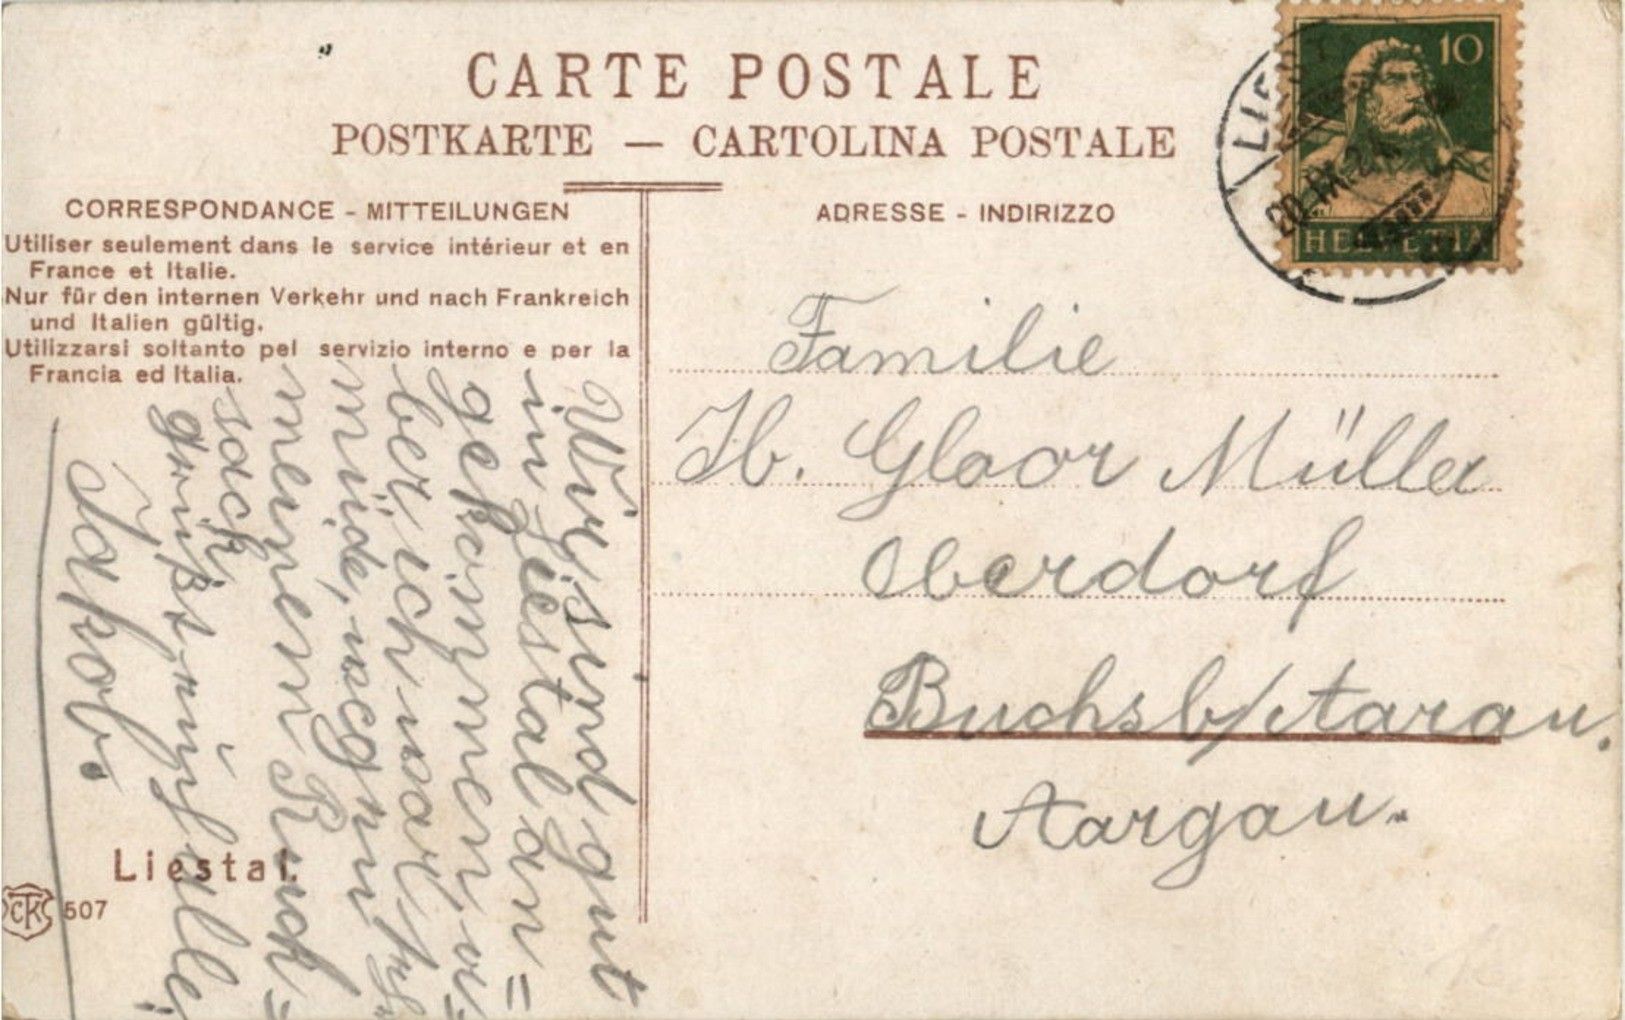 CARTE POSTALE
POSTKARTE — CARTOLINA POSTALE
CORRESPONDANCE - MITTEILUNGEN
Utiliser seulement dans le service intérieur et en
France et Italie.
Nur für den internen Verkehr und nach Frankreich
und Italien gültig.
Utilizzarsi soltanto pel servizio interno e per la
Francia ed Italia.
Wir sind gut
in Liestal an=
gekommen, a=
ber ich war
müde, wegen
meinem Ruck=
sack
grüßt
alle
Jakob.
Liestal.
507
ADRESSE - INDIRIZZO
10
HELVETIA
Familie
Hb. Gloor Müller
Oberdorf
Buchs b/Aarau.
Aargau.